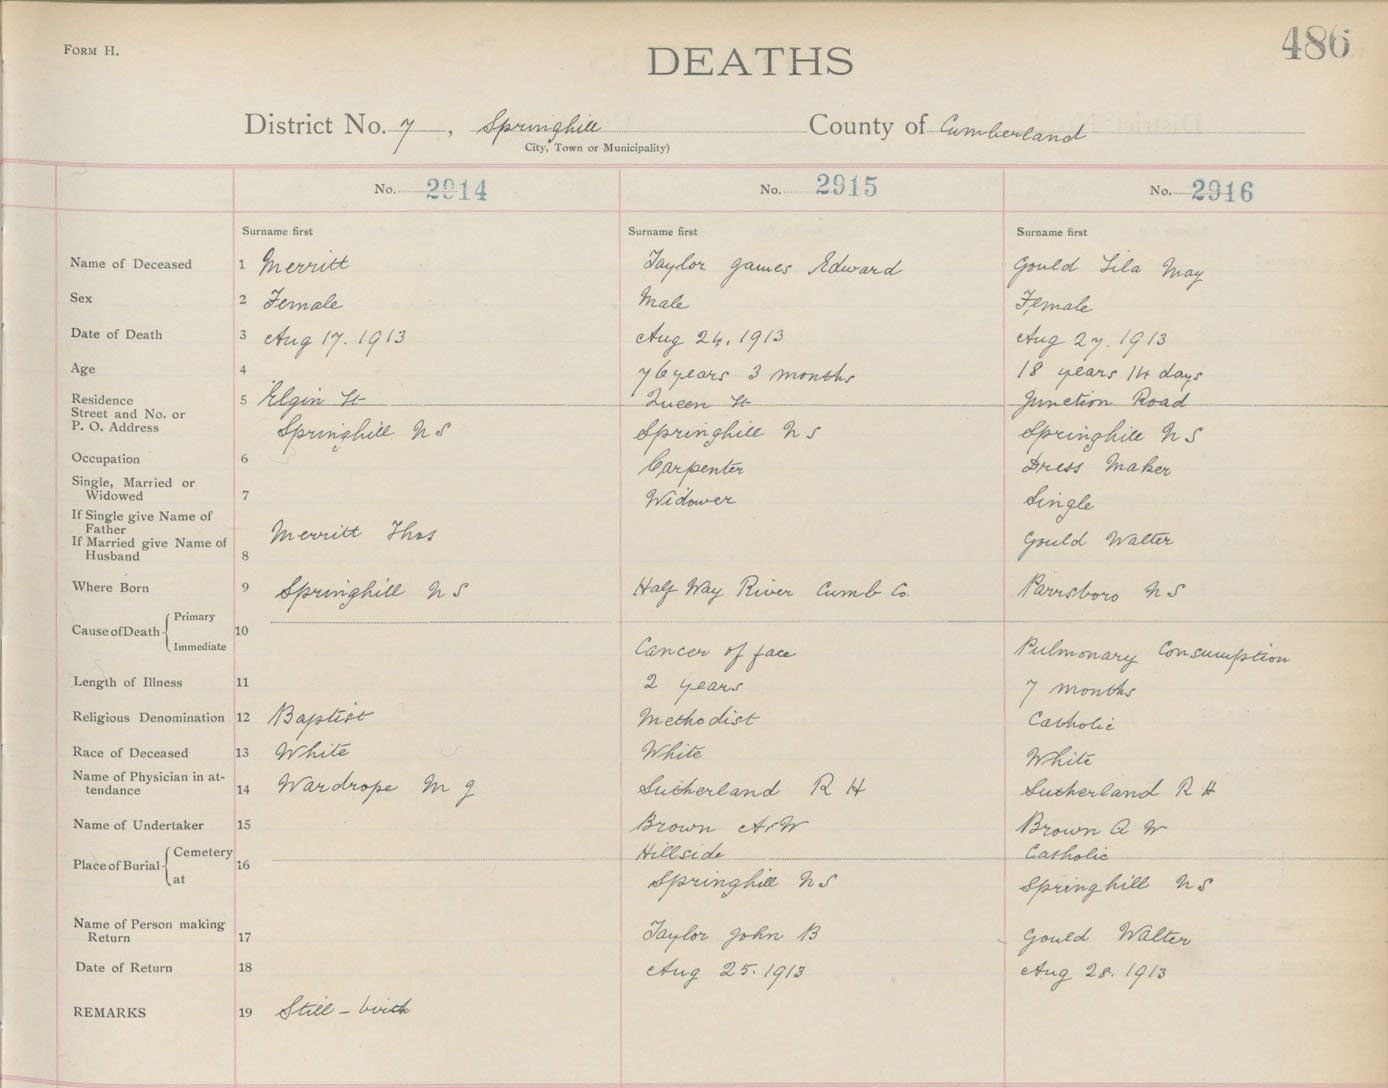 FORM H.
486
DEATHS
District No. 7, Springhill County of Cumberland
City, Town or Municipality)
No. 2914 No. 2915 No. 2916
Surname first Surname first Surname first
Name of Deceased 1 Merritt Taylor James Edward Gould Lila May
Sex 2 Female Male Female
Date of Death 3 Aug 17. 1913 Aug 24. 1913 Aug 27. 1913
Age 4 76 years 3 months 18 years 14 days
Residence 5 Elgin St Queen St Junction Road
Street and No. or
P. O. Address Springhill N S Springhill N S Springhill N S
Occupation 6 Carpenter Dress Maker
Single, Married or
Widowed 7 Widower Single
If Single give Name of
Father
If Married give Name of Merritt Thos Gould Walter
Husband 8
Where Born 9 Springhill N S Half Way River Cumb Co. Parrsboro N S
Cause of Death Primary 10
Immediate Cancer of face Pulmonary Consumption
Length of Illness 11 2 years 7 months
Religious Denomination 12 Baptist Methodist Catholic
Race of Deceased 13 White White White
Name of Physician in at-
tendance 14 Wardrope M J Sutherland R H Sutherland R H
Name of Undertaker 15 Brown A W Brown A W
Place of Burial Cemetery 16 Hillside Catholic
at Springhill N S Springhill N S
Name of Person making
Return 17 Taylor John B Gould Walter
Date of Return 18 Aug 25. 1913 Aug 28. 1913
REMARKS 19 Still - birth